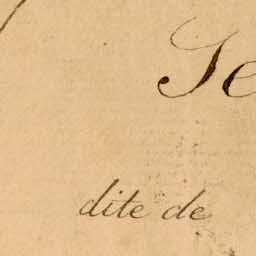 Se
dite de